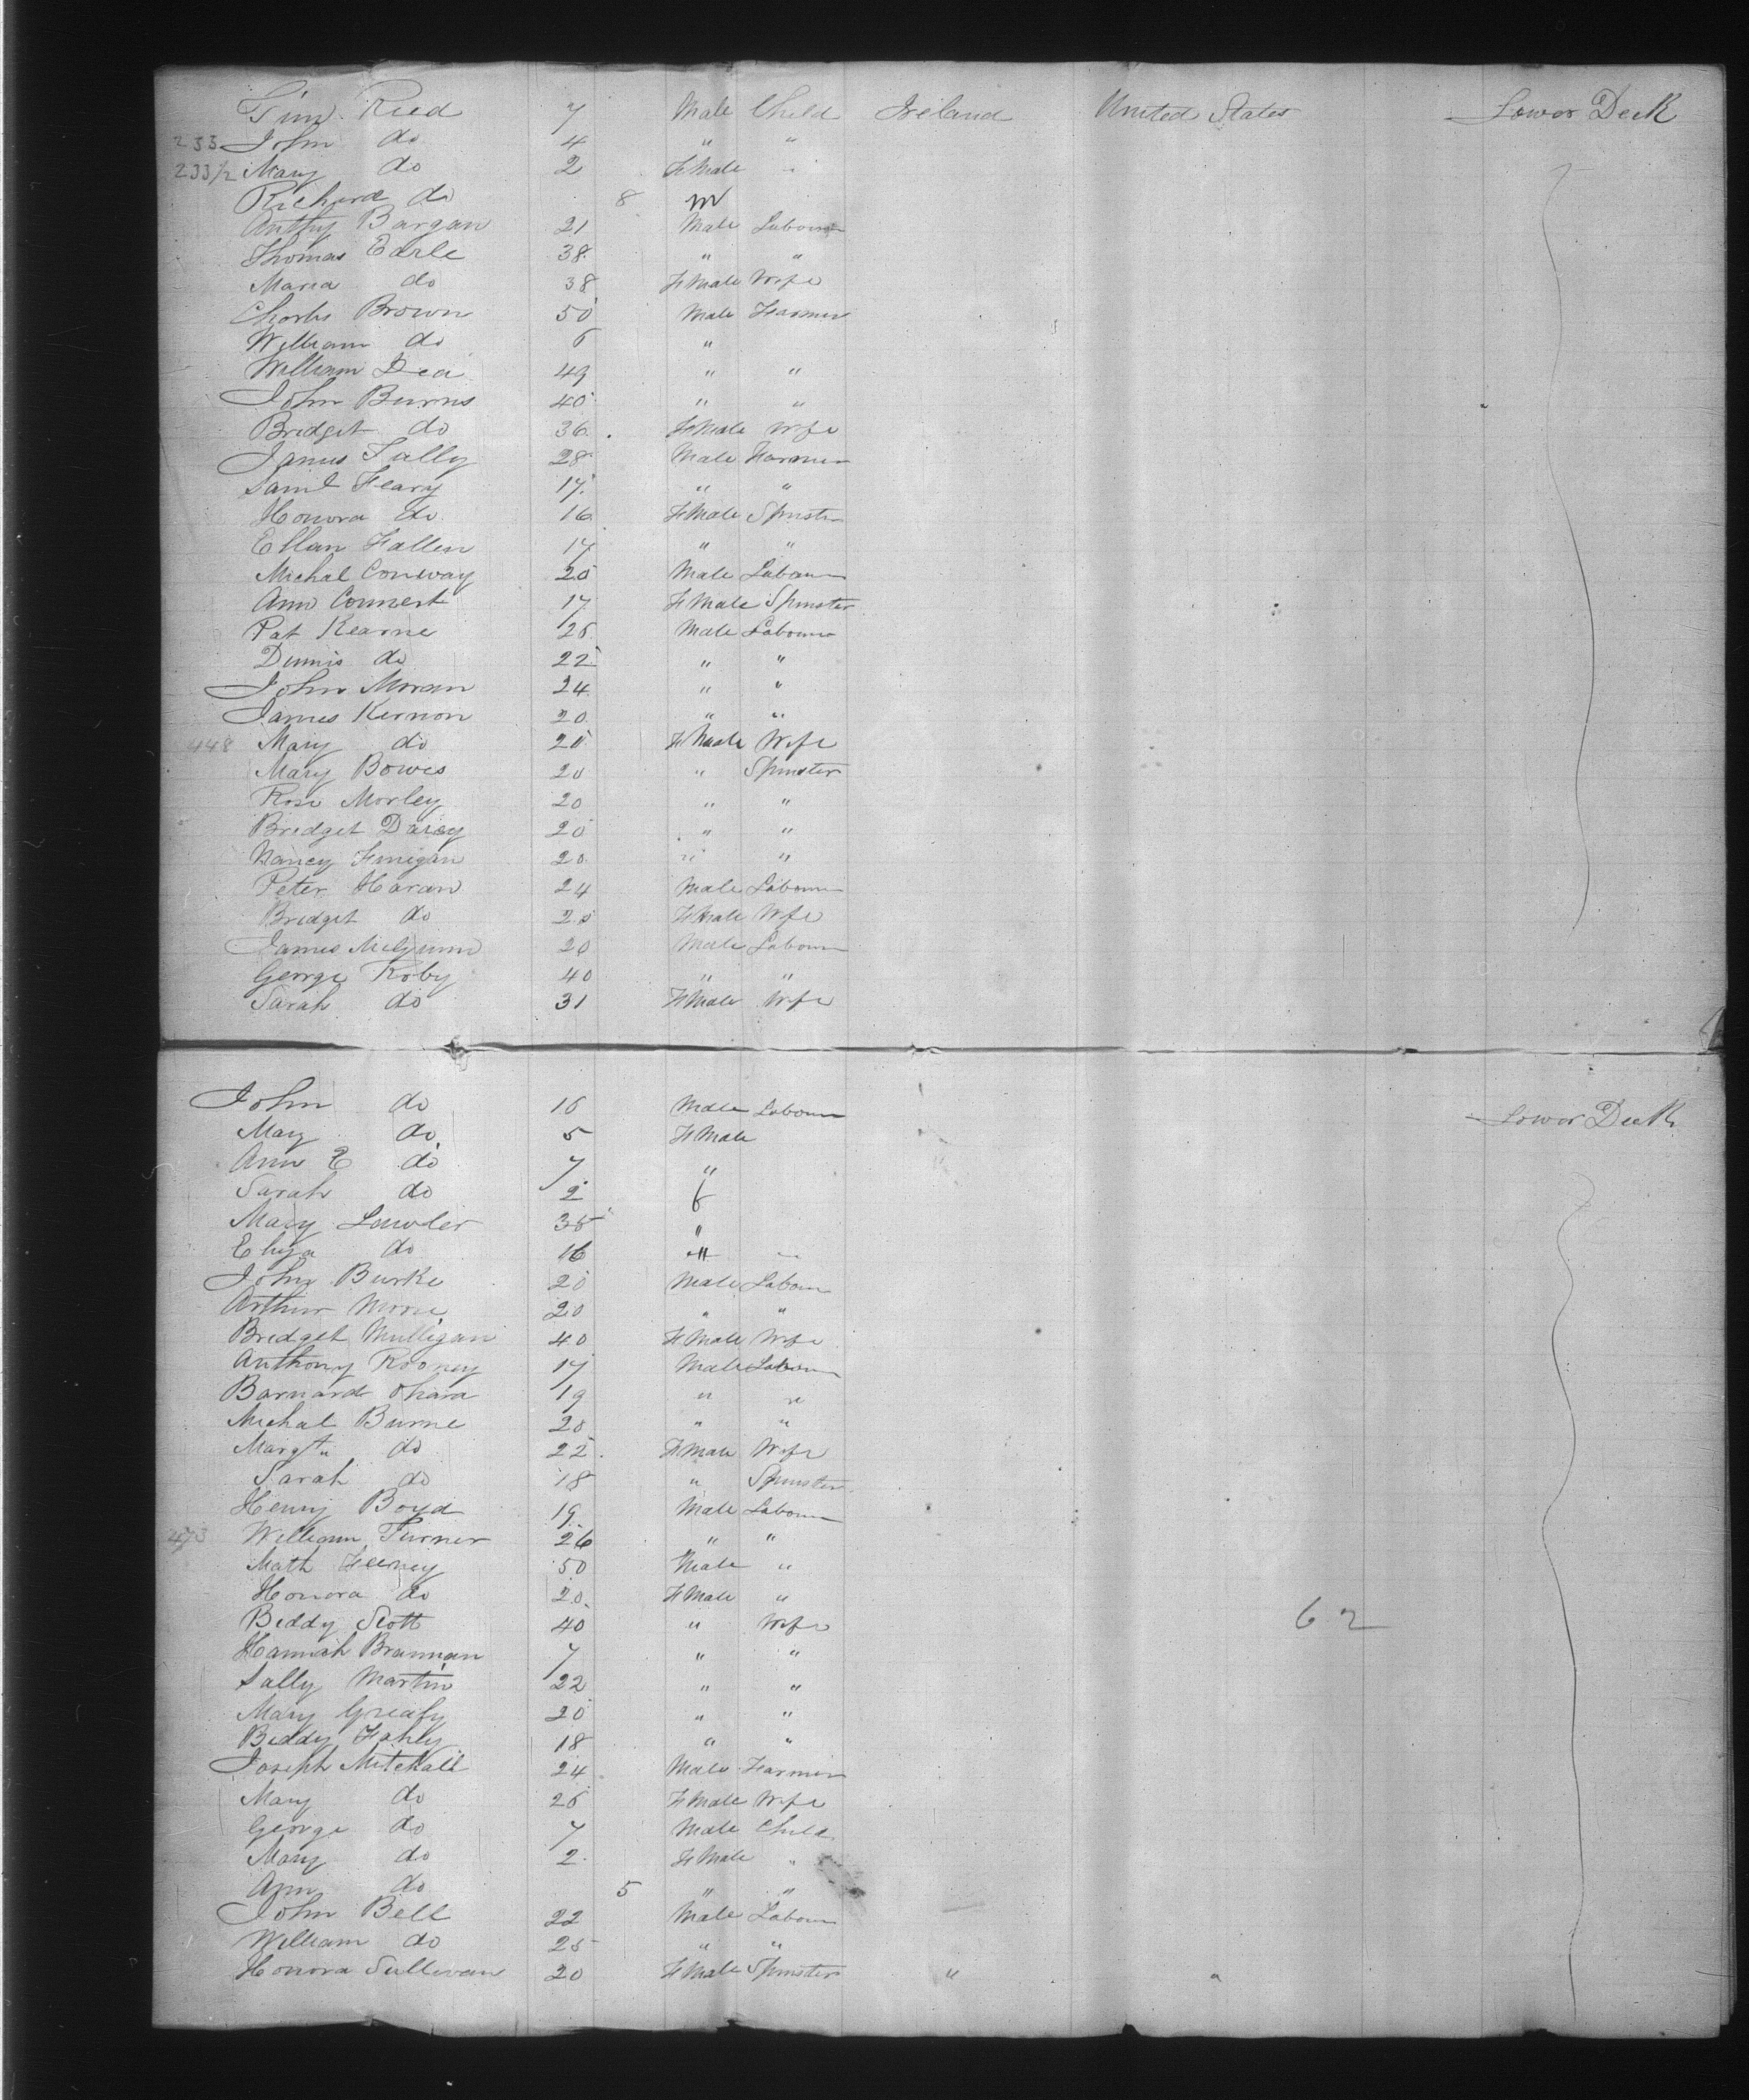 Tim Reed 7 Male Child Ireland United States Lower Deck
233 John do 4 " "
233/2 Mary do 2 FMale "
Richard do 8 m
Anthy Bargan 21 Male Labourer
Thomas Earle 38 " "
Maria do 38 FMale Wife
Charls Brown 50 Male Farmer
William do 6 "
William Dea 49 " "
John Burns 40 " "
Bridget do 36 FMale Wife
James Tully 28 Male Farmer
Saml Feary 17 " "
Honora do 16 FMale Spinster
Ellan Fallen 17 " "
Michal Conway 20 Male Labourer
Ann Connert 17 FMale Spinster
Pat Kearne 25 Male Labourer
Dennis do 22 " "
John Moran 24 " "
James Kernon 20 " "
448 Mary do 20 FMale Wife
Mary Bowes 20 " Spinster
Rose Morley 20 " "
Bridget Darcy 20 " "
Nancy Finigan 20 " "
Peter Haran 24 Male Labourer
Bridget do 20 FMale Wife
James McGunn 20 Male Labour
George Roby 40 " "
Sarah do 31 FMale Wife
John do 16 Male Labour Lower Deck
Mary do 5 FMale
Ann E do 7 "
Sarah do 2 f
Mary Lawler 35 "
Eliza do 16 " "
John Burke 20 Male Labour
Arthur Moore 20 " "
Bridget Mulligan 40 FMale Wife
Anthony Rooney 17 Male Labour
Barnard Ohara 19 " "
Michal Burne 20 " "
Margt do 22 FMale Wife
Sarah do 18 " Spinster
Henry Boyd 19 Male Labour
473 William Turner 26 " "
Math Feerney 50 Male "
Honora do 20 FMale "
Biddy Scott 40 " Wife 62
Hannah Brannan 7 " "
Sally Martin 22 " "
Mary Greafy 20 " "
Biddy Fahly 18 " "
Joseph Mitchall 24 Male Farmer
Mary do 25 FMale Wife
George do 7 Male Child
Mary do 2 FMale "
Ann do 5 " "
John Bell 22 Male Labour
William do 25 " "
Honora Sullivan 20 FMale Spinster " "